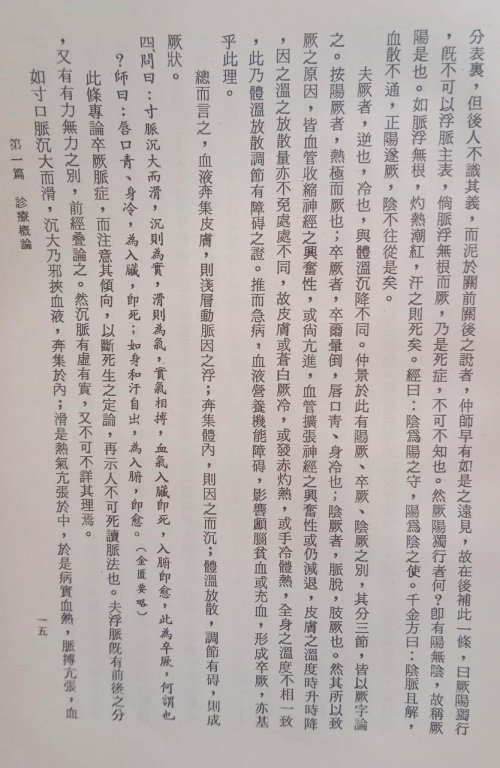 分表裏，但後人不識其義，而泥於關前關後之說者，仲師早有如是之遠見，故在後補此一條，曰厥陽獨行
，旣不可以浮脈主表，倘脈浮無根而厥，乃是死症，不可不知也。然厥陽獨行者何？卽有陽無陰，故稱厥
陽是也。如脈浮無根，灼熱潮紅，汗之則死矣。經曰：陰爲陽之守，陽爲陰之使。千金方曰：陰脈且解，
血散不通，正陽遂厥，陰不往從是矣。
夫厥者，逆也，冷也，與體溫沉降不同。仲景於此有陽厥、卒厥、陰厥之別，其分三節，皆以厥字論
之。按陽厥者，熱極而厥也；卒厥者，卒爾暈倒，唇口青、身冷也；陰厥者，脈脫，肢厥也。然其所以致
厥之原因，皆血管收縮神經之興奮性，或尙亢進，血管擴張神經之興奮性或仍減退，皮膚之溫度時升時降
，因之溫之放散量亦不免處處不同，故皮膚或蒼白厥冷，或發赤灼熱，或手冷體熱，全身之溫度不相一致
，此乃體溫放散調節有障碍之證。推而急病，血液營養機能障碍，影響顱腦貧血或充血，形成卒厥，亦基
乎此理。
總而言之，血液奔集皮膚，則淺層動脈因之浮；奔集體內，則因之而沉；體溫放散，調節有碍，則成
厥狀。
四、問曰：寸脈沉大而滑，沉則為實，滑則為氣，實氣相搏，血氣入臟即死，入腑即愈，此為卒厥，何謂也
？師曰：唇口青、身冷，為入臟，即死；如身和汗自出，為入腑，即愈。（金匱要略）
此條專論卒厥脈症，而注意其傾向，以斷死生之定論，再示人不可死讀脈法也。夫浮脈旣有前後之分
，又有有力無力之別，前經疊論之。然沉脈有虛有實，又不可不詳其理焉。
如寸口脈沉大而滑，沉大乃邪挾血液，奔集於內；滑是熱氣亢張於中，於是病實血熱，脈搏亢張，血
第一篇 診療概論
一五